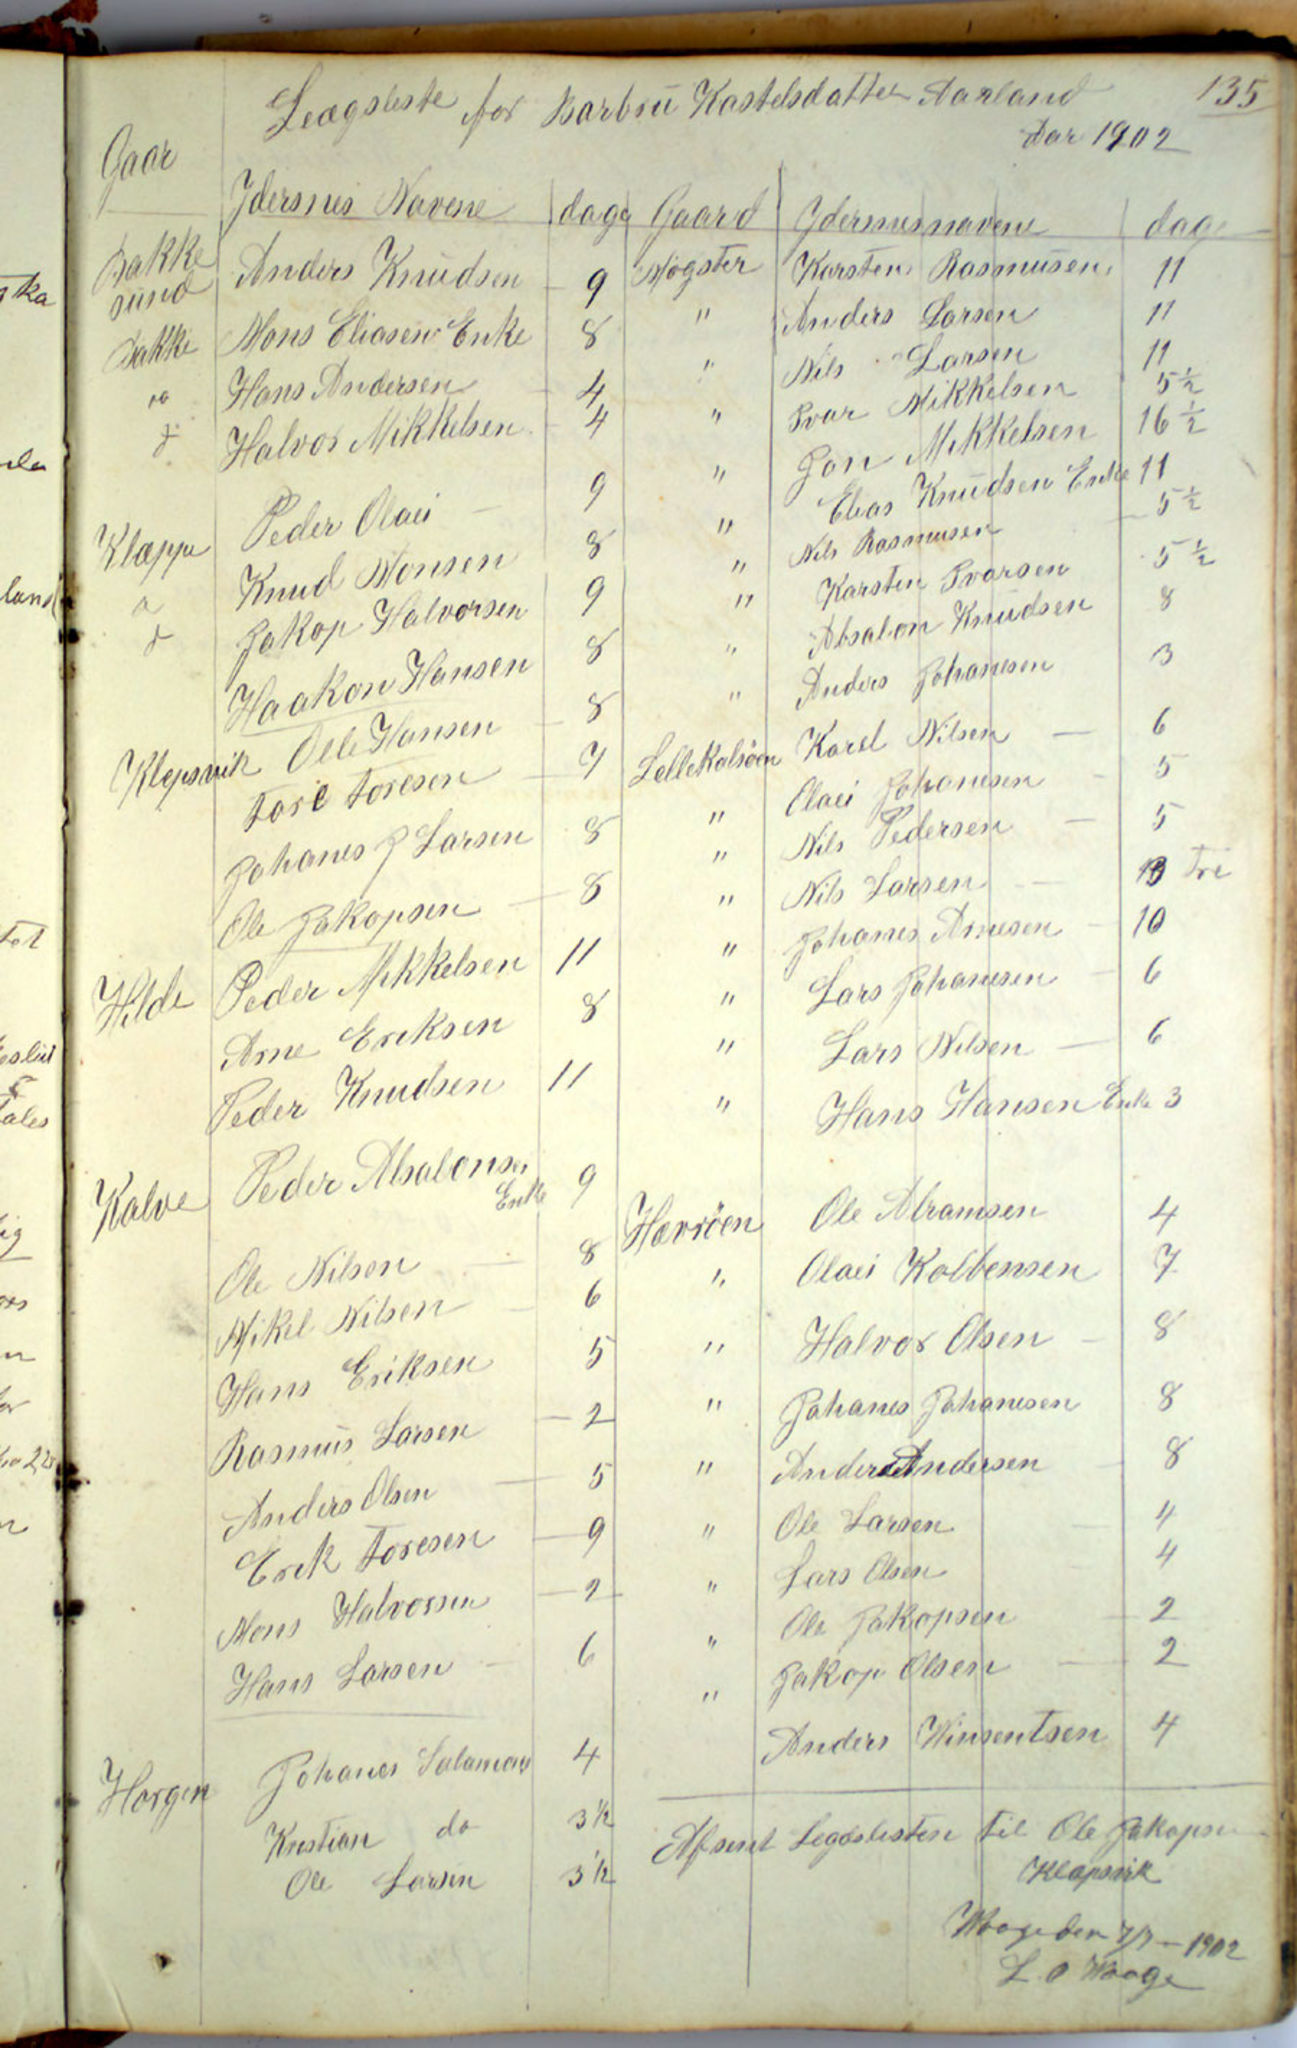 135
Lægsliste for Barbru Kastelsdatter Aarland
Aar 1902
Gaar
Ydersnes Navene dage Gaard Ydersnesnavene dage
Bakke
sund Anders Knudsen 9 Møgster Karsten Rasmusen 11
Bakke Mons Eliasen Enke 8 " Anders Larsen 11
do Hans Andersen 4 " Nils Larsen 11
Halvor Mikkelsen 4 " Ivar Mikkelsen 5½
" Jon Mikkelsen 16½
Klæppe Peder Olai 9 " Elias Knudsen Enke 11
Knud Monsen 8 " Nils Rasmusen 5½
Jakop Halvorsen 9 " Karsten Ivarsen 5½
Haakon Hansen 8 " Absalon Knudsen 8
Klepsvik Olle Hansen 8 " Anders Johanesen 3
Tore Toresen 7 Lellekalsøen Karel Nilsen 6
" Olai Johanesen 5
Johanes J Larsen 8 " Nils Pedersen 5
Ole Jakopsen 8 " Nils Larsen 13 Tre
" Johanes Arnesen 10
Hilde Peder Mikkelsen 11 " Lars Johanesen 6
Arne Eriksen 8 " Lars Nilsen 6
Peder Knudsen 11 " Hans Hansen Enke 3
Kalve Peder Absalonsen
Enke 9
Hævrøen Ole Abramsen 4
Ole Nilsen 8 " Olai Kolbensen 7
Mikel Nilsen 6 " Halvor Olsen 8
Hans Eriksen 5 " Johanes Johanesen 8
Rasmus Larsen 2 " Anders Andersen 8
Anders Olsen 5 " Ole Larsen 4
Erik Toresen 9 " Lars Olsen 4
Mons Halvorsen 2 " Ole Jakopsen 2
Hans Larsen 6 " Jakop Olsen 2
Anders Winsentsen 4
Horgen Johanes Salamons 4
Kristian do 3½
Ole Larsen 3½
Afsent Legdslisten til Ole Jakopsen
Klæpsvik
Waage den 7/7 – 1902
L O Waage